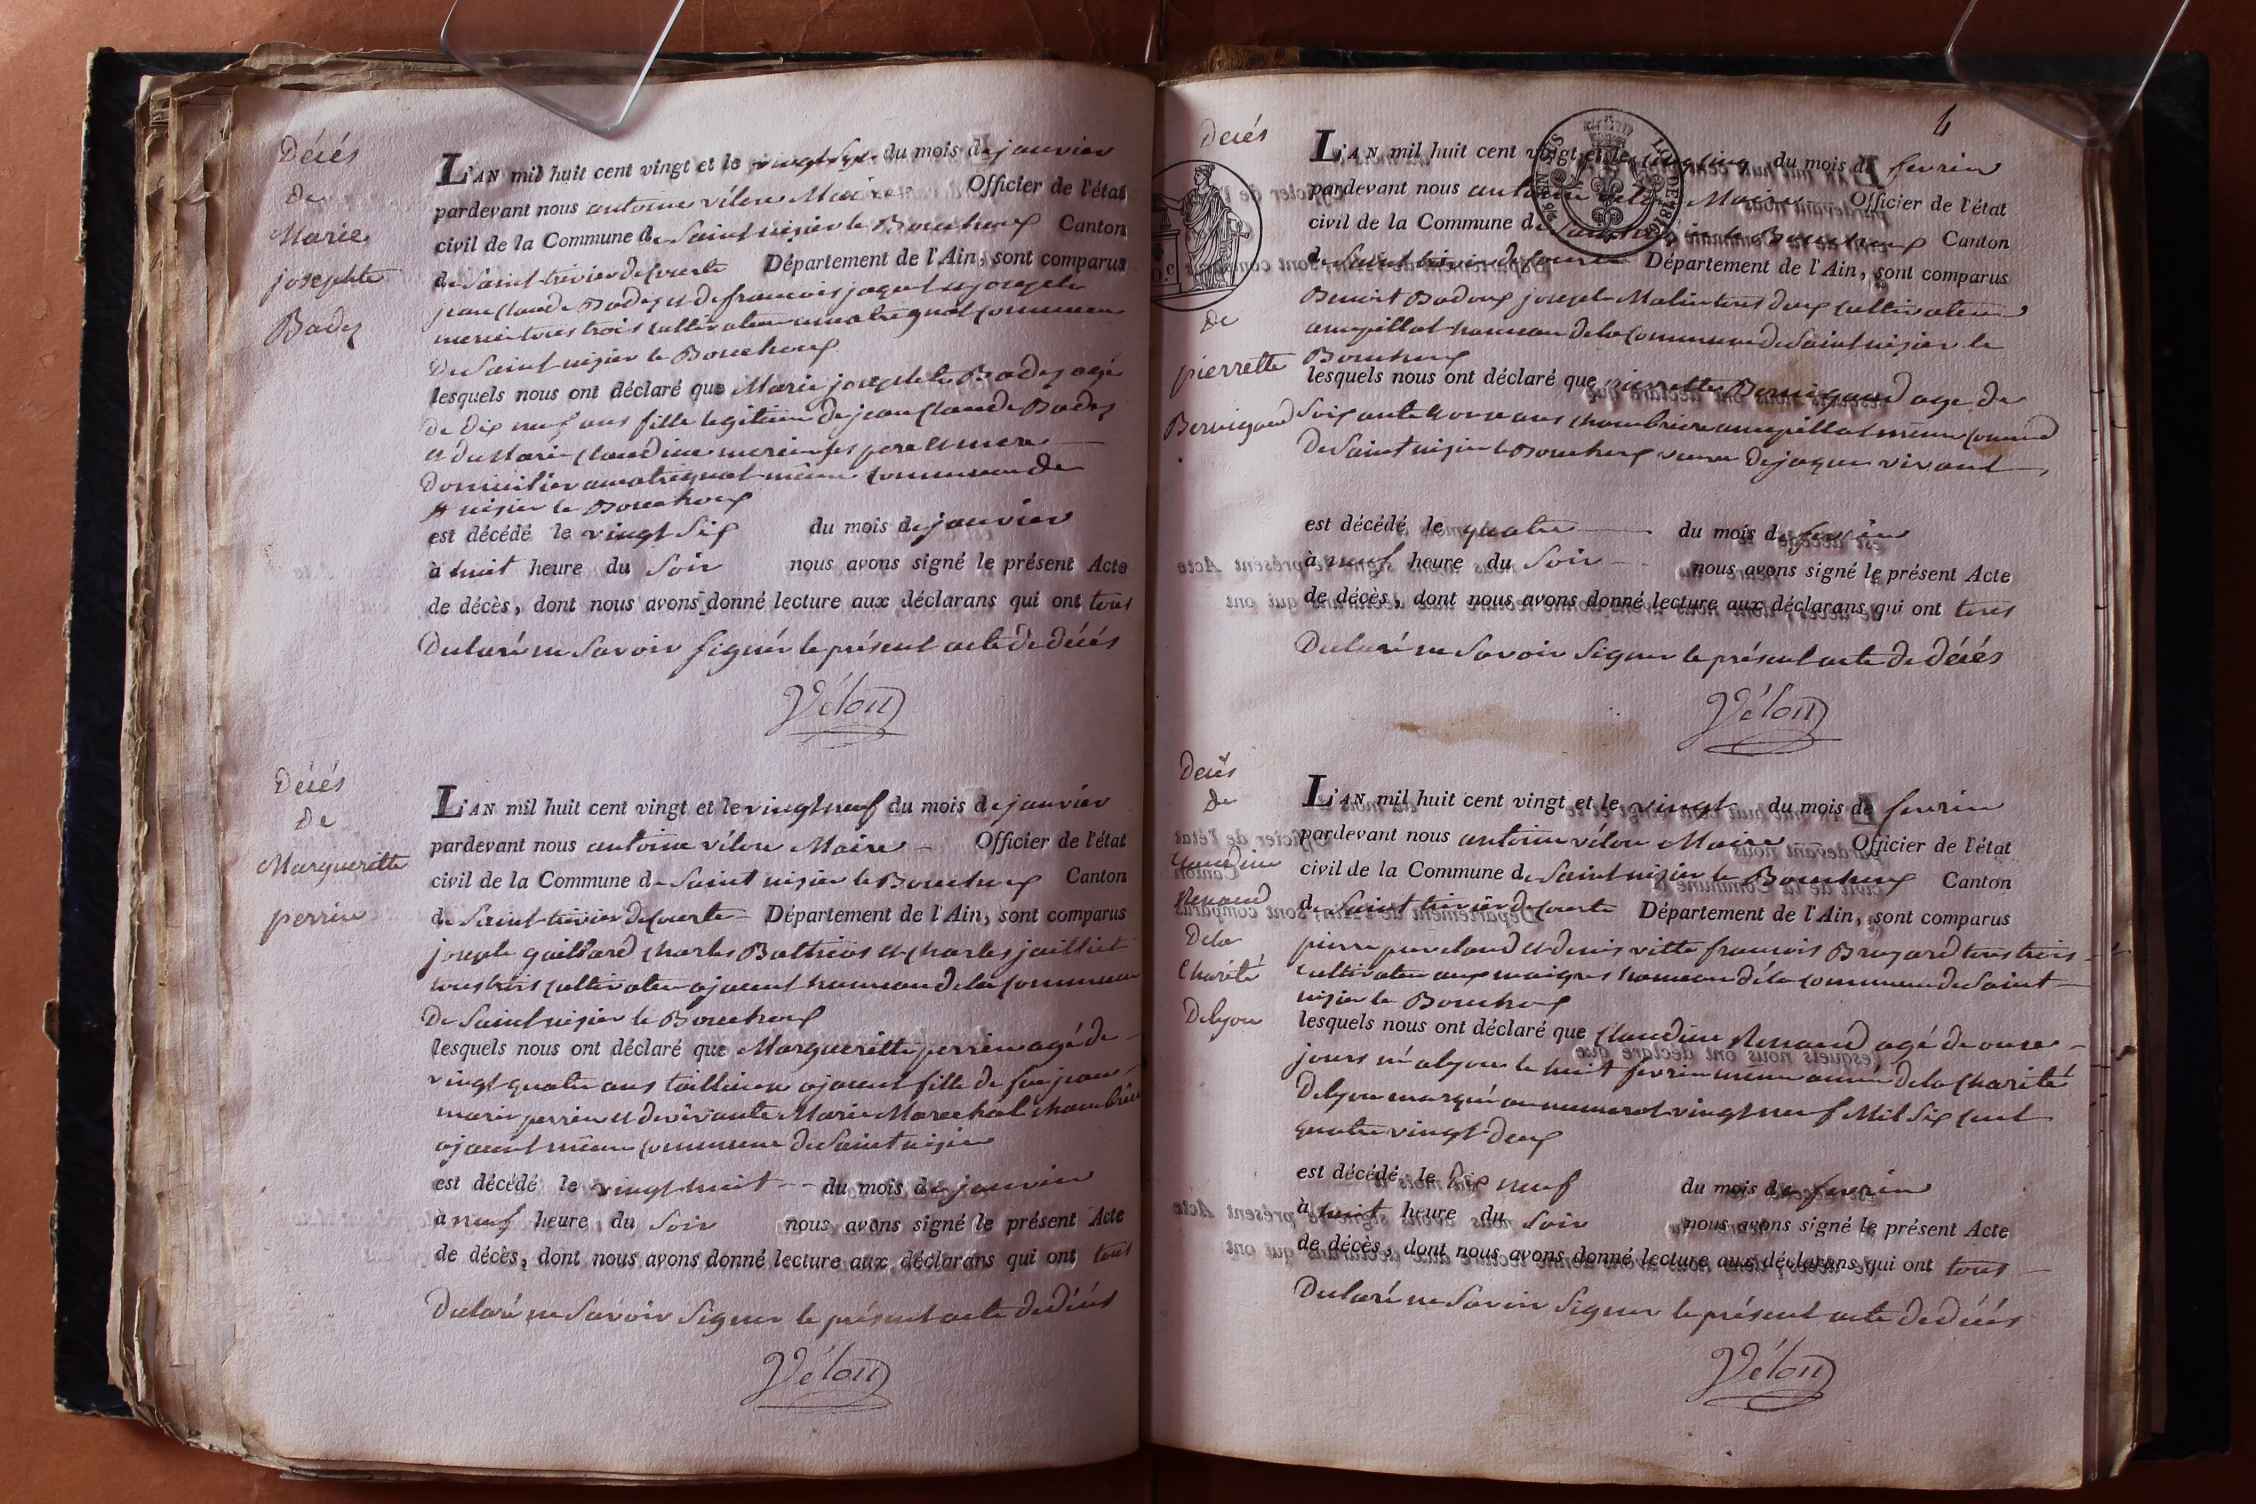 Décés
de
Marie
josephte
Badez
L'AN mil huit cent vingt et le vingt sept du mois de janvier
pardevant nous antoine vélon Maire Officier de l'état
civil de la Commune de Saint nizier le Bouchoux Canton
de Saint trivier de Courte Département de l'Ain, sont comparus
jean Claude Badez et de francois joseph
tous trois cultivateur commune
De Saint nizier le Bouchoux
lesquels nous ont déclaré que Marie josephte Badez agé
de dix neuf ans fille legitime de jean Claude Badez
et de Marie Claudine mercier ses pere et mere
Domicilier même commune de
st nizier le Bouchoux
est décédé le vingt six du mois de janvier
à huit heure du Soir nous avons signé le présent Acte
de décès, dont nous avons donné lecture aux déclarans qui ont tous
Declaré ne Savoir signér le présent acte de décés
Vélon
Décés
de
Margueritte
perrin
L'AN mil huit cent vingt et le vingt neuf du mois de janvier
pardevant nous antoine vélon Maire Officier de l'état
civil de la Commune de Saint nizier le Bouchoux Canton
de Saint trivier de Courte Département de l'Ain, sont comparus
joseph gaillard charles Bathias et charles jailliet
tous trois cultivateur ajacout hameau de la commune
De Saint nizier le Bouchoux
lesquels nous ont déclaré que Margueritte perrin agé de
vingt quatre ans tailleuse ajacout fille de feu jean
marie perrin et de vivante Marie Marechal chambriere
ajacout même commune de Saint nizier
est décédé le vingt huit du mois de janvier
à neuf heure du Soir nous avons signé le présent Acte
de décès, dont nous avons donné lecture aux déclarans qui ont tous
Declaré ne Savoir Signer le présent acte de décés
Vélon
4
Decés
De
pierrette
Bervigoud
L'AN mil huit cent vingt et le cinq du mois de fevrier
pardevant nous antoine vélon Maire Officier de l'état
civil de la Commune de Saint nizier le Bouchoux Canton
de Saint trivier de Courte Département de l'Ain, sont comparus
Benoit Badoux joseph Matin tous deux cultivateur
hameau de la Commune de Saint nizier le
Bouchoux
lesquels nous ont déclaré que pierrette Bervigoud age de
Soixante ans chambriere même commune
De Saint nizier le Bouchoux veuve De jaque vivant
est décédé le quatre du mois de fevrier
à neuf heure du Soir nous avons signé le présent Acte
de décès, dont nous avons donné lecture aux déclarans qui ont tous
Declaré ne Savoir Signer le présent acte de décés
Vélon
Decés
De
Claudine
Renaud
De la
Charité
De lyon
L'AN mil huit cent vingt et le vingt du mois de fevrier
pardevant nous antoine vélon Maire Officier de l'état
civil de la Commune de Saint nizier le Bouchoux Canton
de Saint trivier de Courte Département de l'Ain, sont comparus
pierre et denis vitte francois Bruyard tous trois
cultivateur aux maigres hameau de la commune de Saint
nizier le Bouchoux
lesquels nous ont déclaré que Claudine Renaud agé de onze
jours né a lyon le huit fevrier même année de la Charité
De lyon marqué au numerot vingt neuf Mil Six cent
quatre vingt deux
est décédé le Dix neuf du mois de fevrier
à huit heure du Soir nous avons signé le présent Acte
de décès, dont nous avons donné lecture aux déclarans qui ont tous
Declaré ne Savoir Signer le présent acte de décés
Vélon